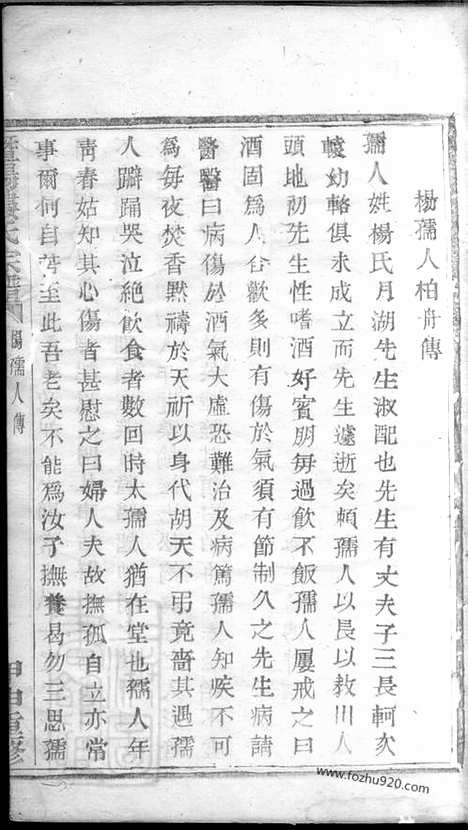 楊孺人柏舟傳
孺人姓楊氏月湖先生淑配也先生有丈夫子三長軻次
轅幼輅俱未成立而先生遽逝矣賴孺人以長以教川人
頭地初先生性嗜酒好賓朋每過飲不飯孺人屢戒之曰
酒固爲人合歡多則有傷於氣須有節制久之先生病請
醫醫曰病傷於酒氣大虛恐難治及病篤孺人知疾不可
爲每夜焚香默禱於天祈以身代胡天不弔竟嗇其遇孺
人躃踊哭泣絕飲食者數回時太孺人猶在堂也孺人年
靑春姑知其心傷者甚慰之曰婦人夫故撫孤自立亦常
事爾何自苦至此吾老矣不能爲汝子撫養曷勿三思孺
氏宗譜
楊孺人傳
甲申重修
www.fozhu920.com